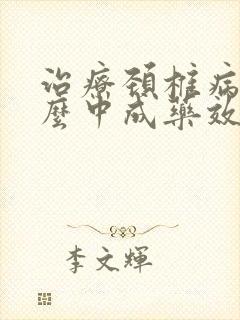 治療頚椎病
麼中成藥效
李文輝